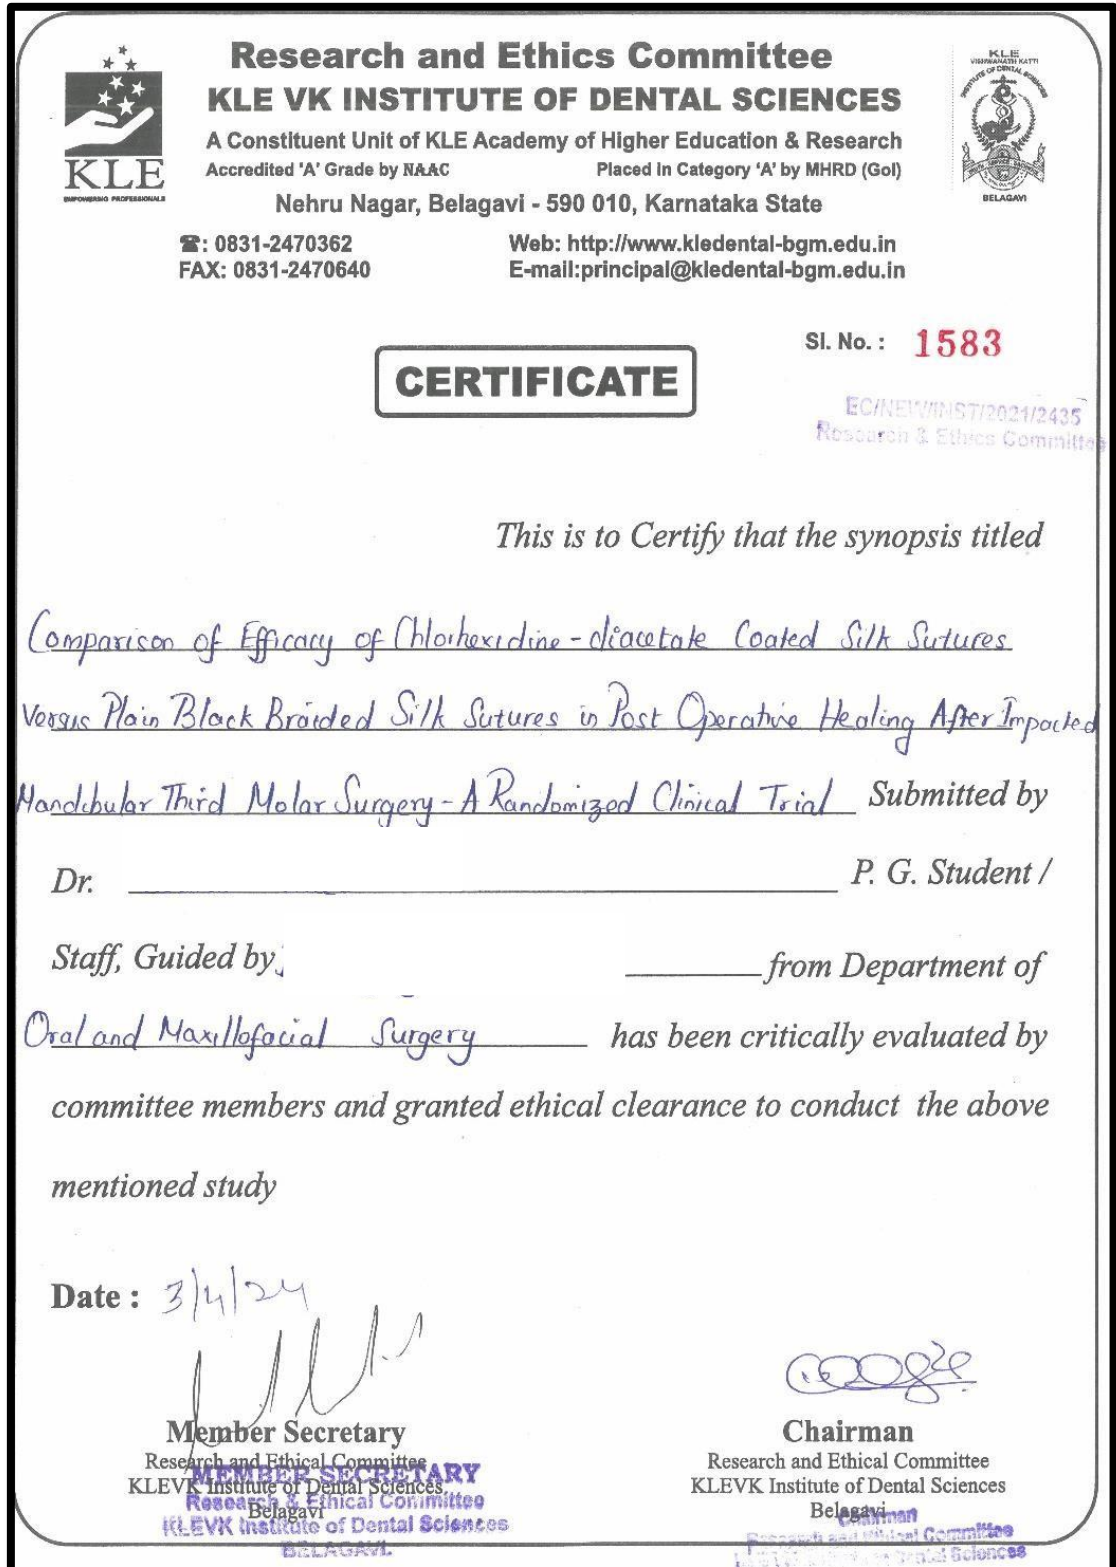 Research and Ethics Committee
KLE VK INSTITUTE OF DENTAL SCIENCES
A Constituent Unit of KLE Academy of Higher Education & Research
Accredited 'A' Grade by NAAC Placed in Category 'A' by MHRD (GoI)
Nehru Nagar, Belagavi - 590 010, Karnataka State
KLE
EMPOWERING PROFESSIONALS
KLE
VISHWANATH KATTI
INSTITUTE OF DENTAL SCIENCES
BELAGAVI
☎: 0831-2470362 Web: http://www.kledental-bgm.edu.in
FAX: 0831-2470640 E-mail:principal@kledental-bgm.edu.in
Sl. No. : 1583
CERTIFICATE
EC/NEW/INST/2021/2435
Research & Ethics Committee
This is to Certify that the synopsis titled
Comparison of Efficacy of Chlorhexidine-diacetate Coated Silk Sutures
Versus Plain Black Braided Silk Sutures in Post Operative Healing After Impacted
Mandibular Third Molar Surgery - A Randomized Clinical Trial Submitted by
Dr. P. G. Student /
Staff, Guided by from Department of
Oral and Maxillofacial Surgery has been critically evaluated by
committee members and granted ethical clearance to conduct the above
mentioned study
Date : 3/4/24
Member Secretary
Research and Ethical Committee
KLEVK Institute of Dental Sciences.
Belagavi
MEMBER SECRETARY
Research & Ethical Committee
KLEVK Institute of Dental Sciences
BELAGAVI.
Chairman
Research and Ethical Committee
KLEVK Institute of Dental Sciences
Belagavi
Chairman
Research and Ethical Committee
Dental Sciences